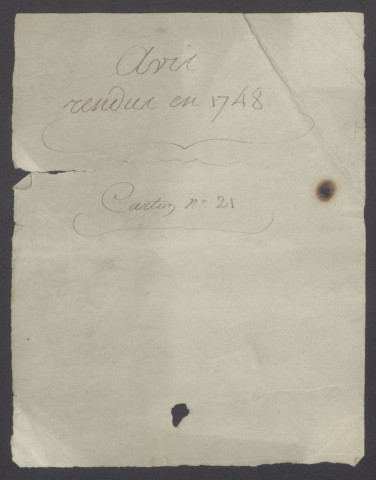 Avis
rendus en 1748
Carton n.° 21